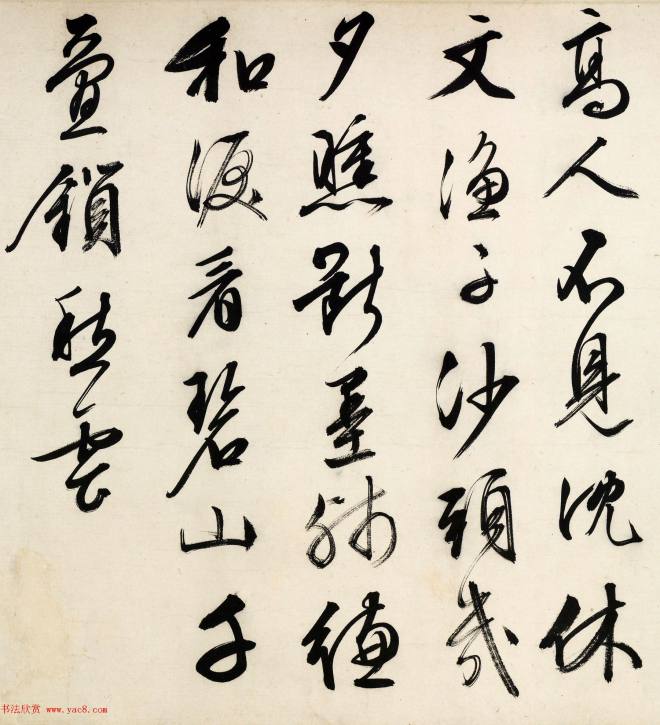 高人不見沈休
文漁子沙頭幾
夕曛斷墨殘縑
和淚看碧山千
疊鎖愁雲
书法欣赏 www.yac8.com